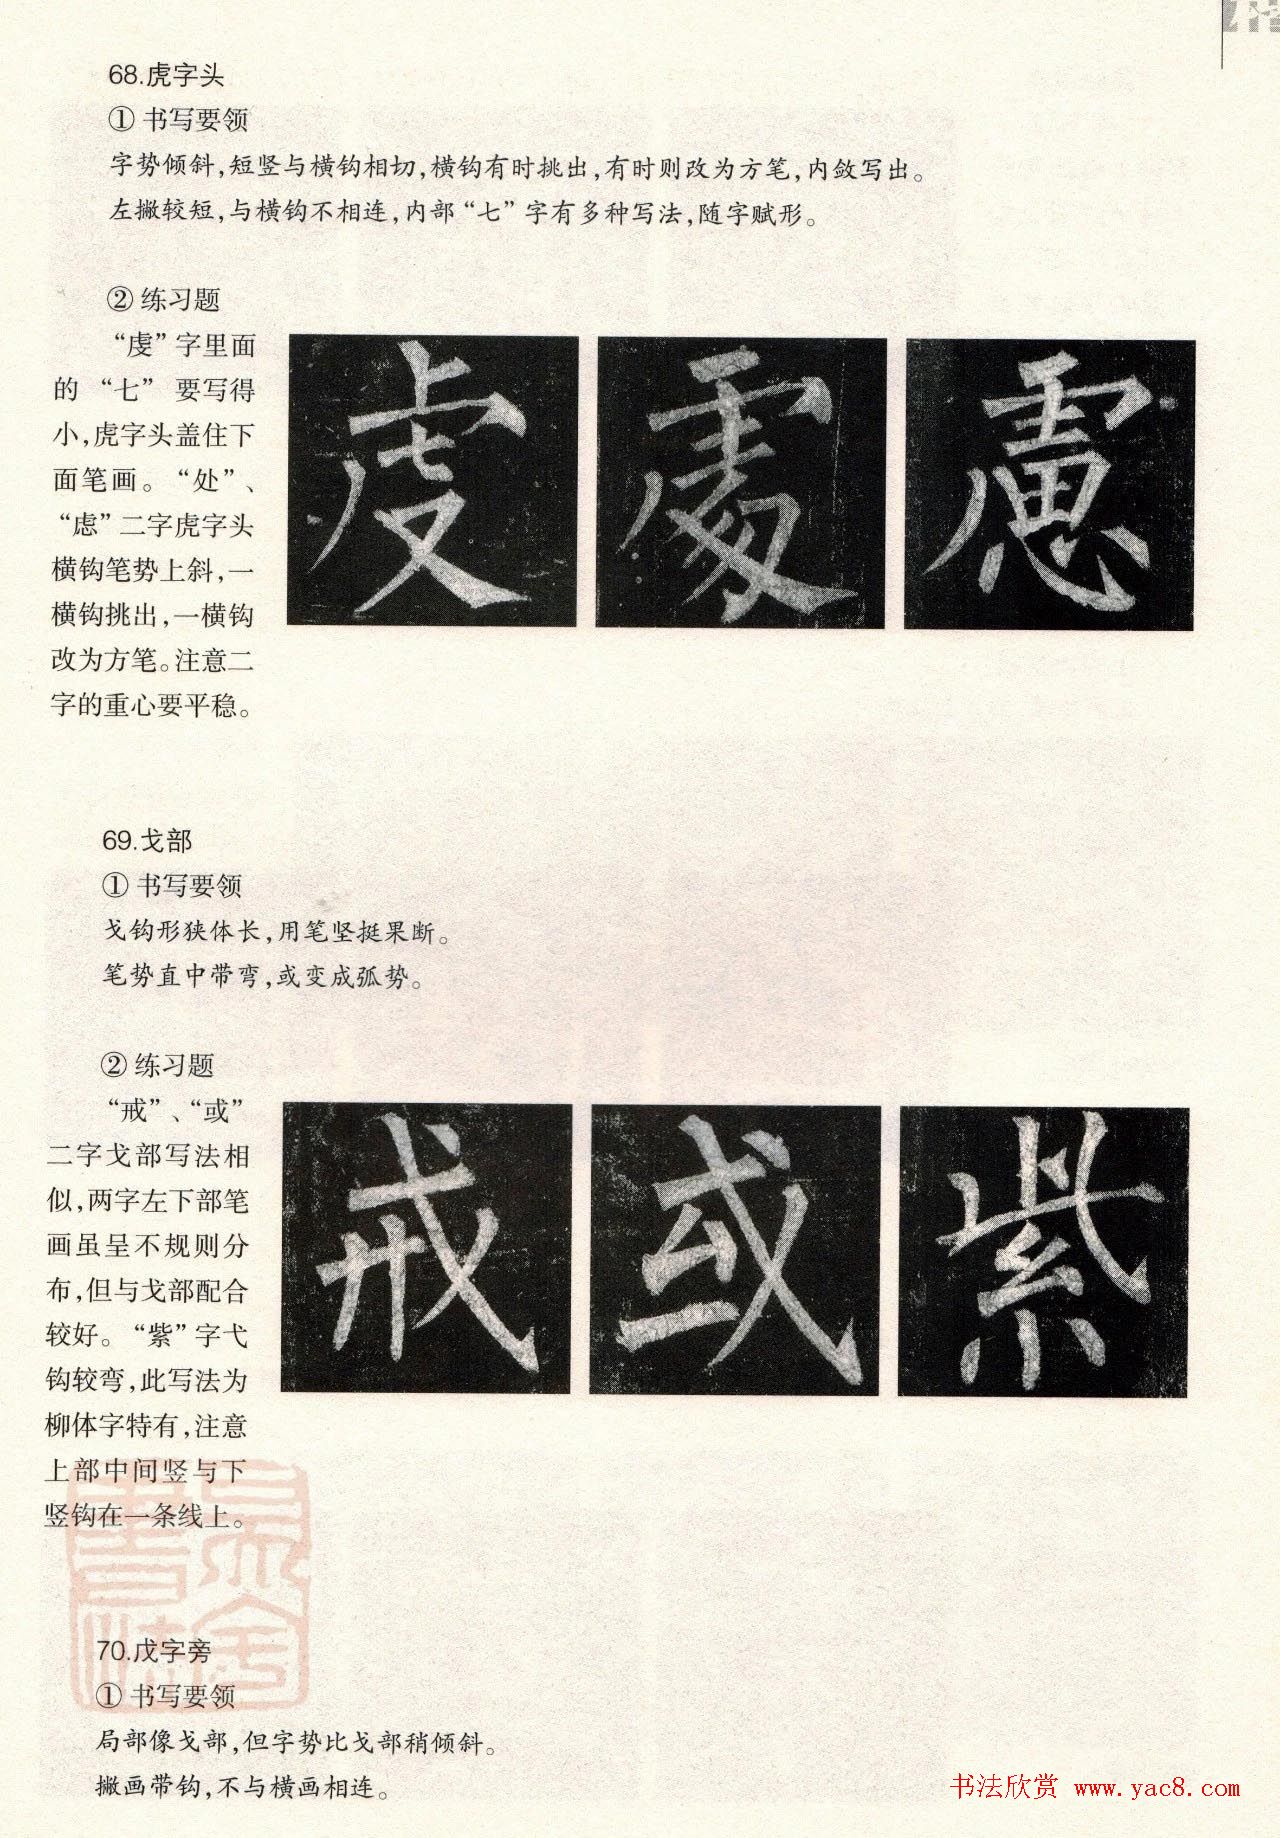 68.虎字头
① 书写要领
字势倾斜,短竖与横钩相切,横钩有时挑出,有时则改为方笔,内敛写出。
左撇较短,与横钩不相连,内部“七”字有多种写法,随字赋形。
② 练习题
“虔”字里面
的“七”要写得
小,虎字头盖住下
面笔画。“处”、
“虑”二字虎字头
横钩笔势上斜,一
横钩挑出,一横钩
改为方笔。注意二
字的重心要平稳。
虔 處 慮
69.戈部
① 书写要领
戈钩形狭体长,用笔坚挺果断。
笔势直中带弯,或变成弧势。
② 练习题
“戒”、“或”
二字戈部写法相
似,两字左下部笔
画虽呈不规则分
布,但与戈部配合
较好。“紫”字弋
钩较弯,此写法为
柳体字特有,注意
上部中间竖与下
竖钩在一条线上。
戒 或 紫
70.戊字旁
① 书写要领
局部像戈部,但字势比戈部稍倾斜。
撇画带钩,不与横画相连。
书法欣赏 www.yac8.com